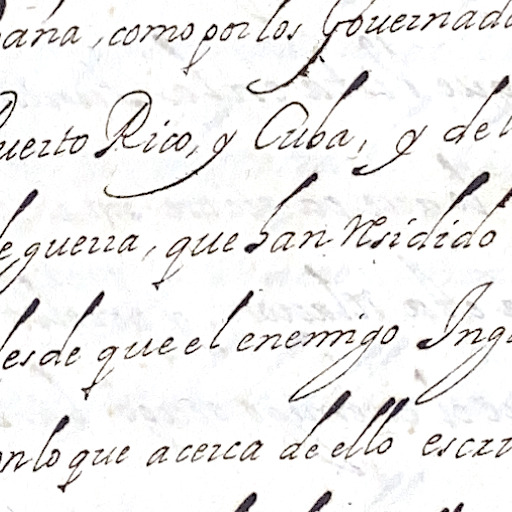 bana, como por los Gouernado
Puerto Rico, y Cuba, y de l
de guerra, que han residido
desde que el enemigo Ing
con lo que acerca de ello escri